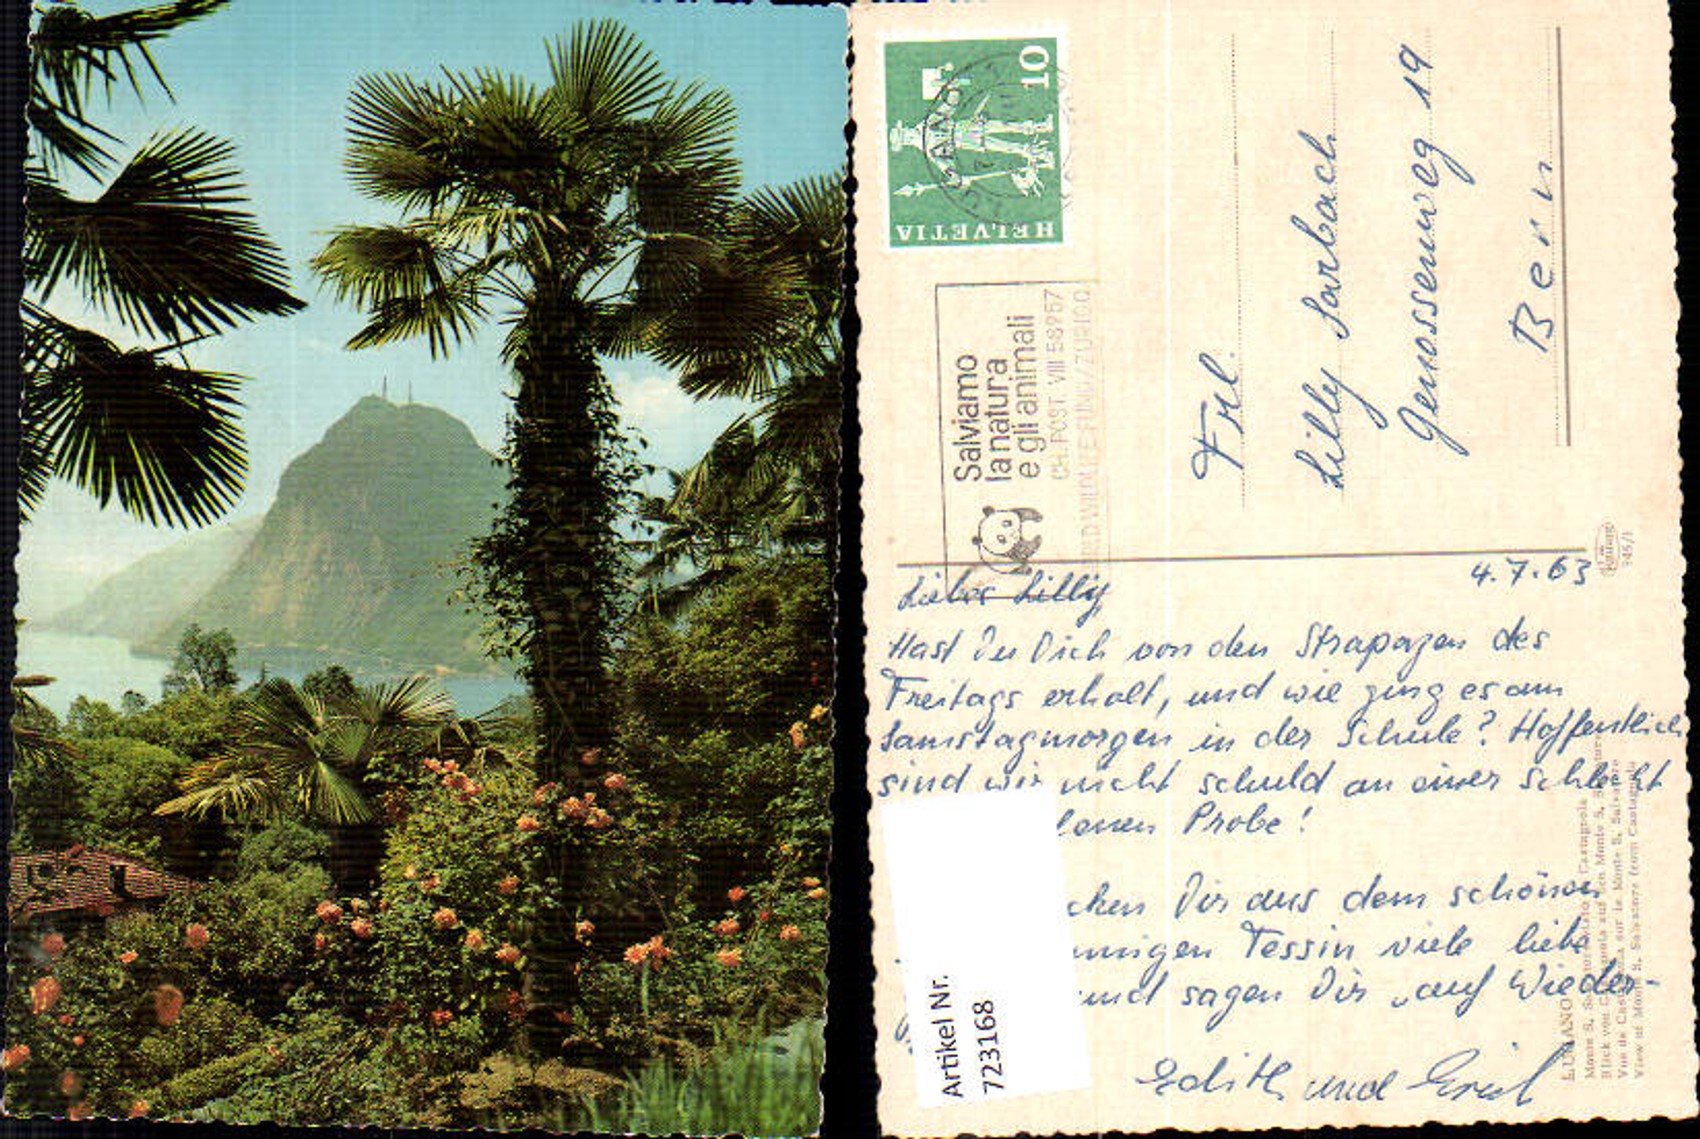 HELVETIA
10
LUGANO
Salviamo
la natura
e gli animali
CH. POST. VIII 58957
WORLD WILDLIFE FUND/ZURIGO
Frl.
Lilly Sarbach
Genossenweg 19
Bern
945/1
4.7.63
Liebes Lilly
Hast Du Dich von den Strapazen des
Freitags erholt, und wie ging es am
Samstagmorgen in der Schule? Hoffentlich
sind wir nicht schuld an einer schlecht
lenen Probe!
cken Dir aus dem schönen
nnigen Tessin viele liebe
und sagen Dir „auf Wieder-
Edith und
LUGANO
Monte S. Salvatore Castagnola
Blick von Castagnola auf den Monte S. Salvatore
Vue de Castagnola sur le Monte S. Salvatore
View of Monte S. Salvatore from Castagnola
Artikel Nr.
723168